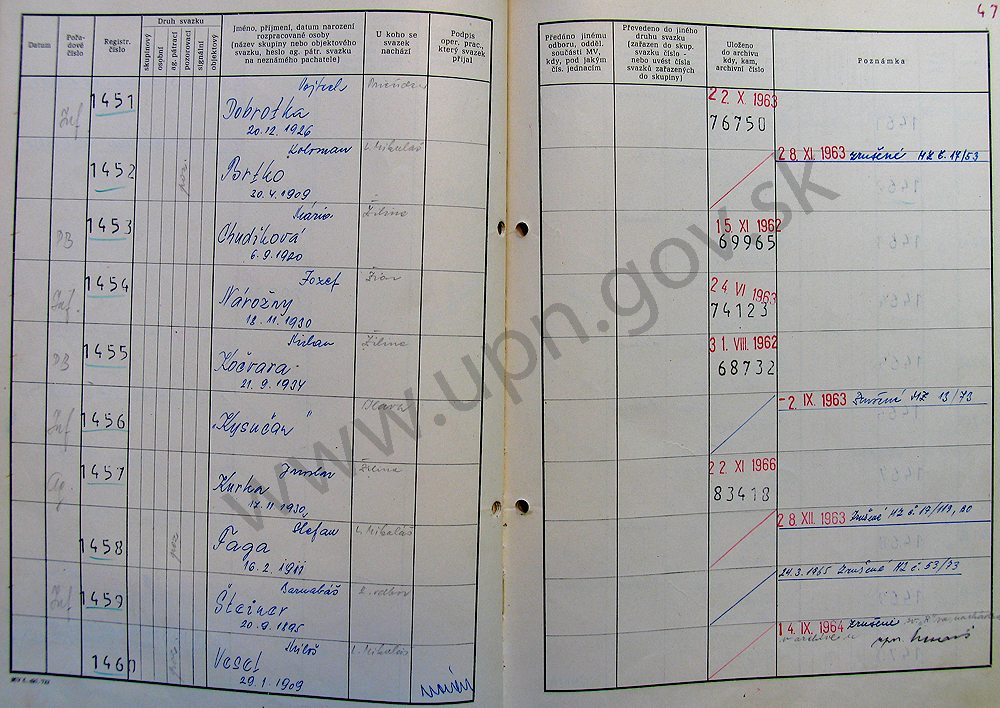 47
Datum
Pořa-
dové
číslo
Registr.
číslo
Druh svazku
skupinový
osobní
ag. pátrací
pozorovací
signální
objektový
Jméno, příjmení, datum narození
rozpracované osoby
(název skupiny nebo objektového
svazku, heslo ag. pátr. svazku
na neznámého pachatele)
U koho se
svazek
nachází
Podpis
oper. prac.,
který svazek
přijal
Předáno jinému
odboru, odděl.
součásti MV,
kdy, pod jakým
čís. jednacím
Převedeno do jiného
druhu svazku
(zařazen do skup.
svazku číslo -
nebo uvést čísla
svazků zařazených
do skupiny)
Uloženo
do archivu
kdy, kam,
archivní číslo
Poznámka
Inf
1451
Vojtech
Dobrotka
20.12.1926
22. X. 1963
76750
1452
poz
Koloman
Brtko
30.4.1909
L. Mikuláš
28. XI. 1963 zrušené MZ č. 17/53
PB
1453
Mária
Chudíková
6.9.1920
Žilina
15. XI 1962
69965
Inf.
1454
Jozef
Nárožny
18.11.1930
24 VI 1963
74123
PB
1455
Milan
Kočvara
21.9.1934
Žilina
31. VIII. 1962
68732
Inf
1456
"Kysučan"
-2. IX. 1963 MZ 13/73
Ag.
1457
Jaroslav
Kurka
17.11.1930
Žilina
22 XI 1966
83418
1458
poz
Štefan
Faga
16.2.1911
L. Mikuláš
28. XII. 1963 Zrušené MZ č. 17/113,
Inf
1459
Barnabáš
Šteiner
20.9.1895
2. odbor
24.3.1965 Zrušené MZ č. 53/73
1460
poz
Miloš
Vesel
29.1.1909
L. Mikuláš
14. IX. 1964 zrušené
v archíve
www.upn.gov.sk